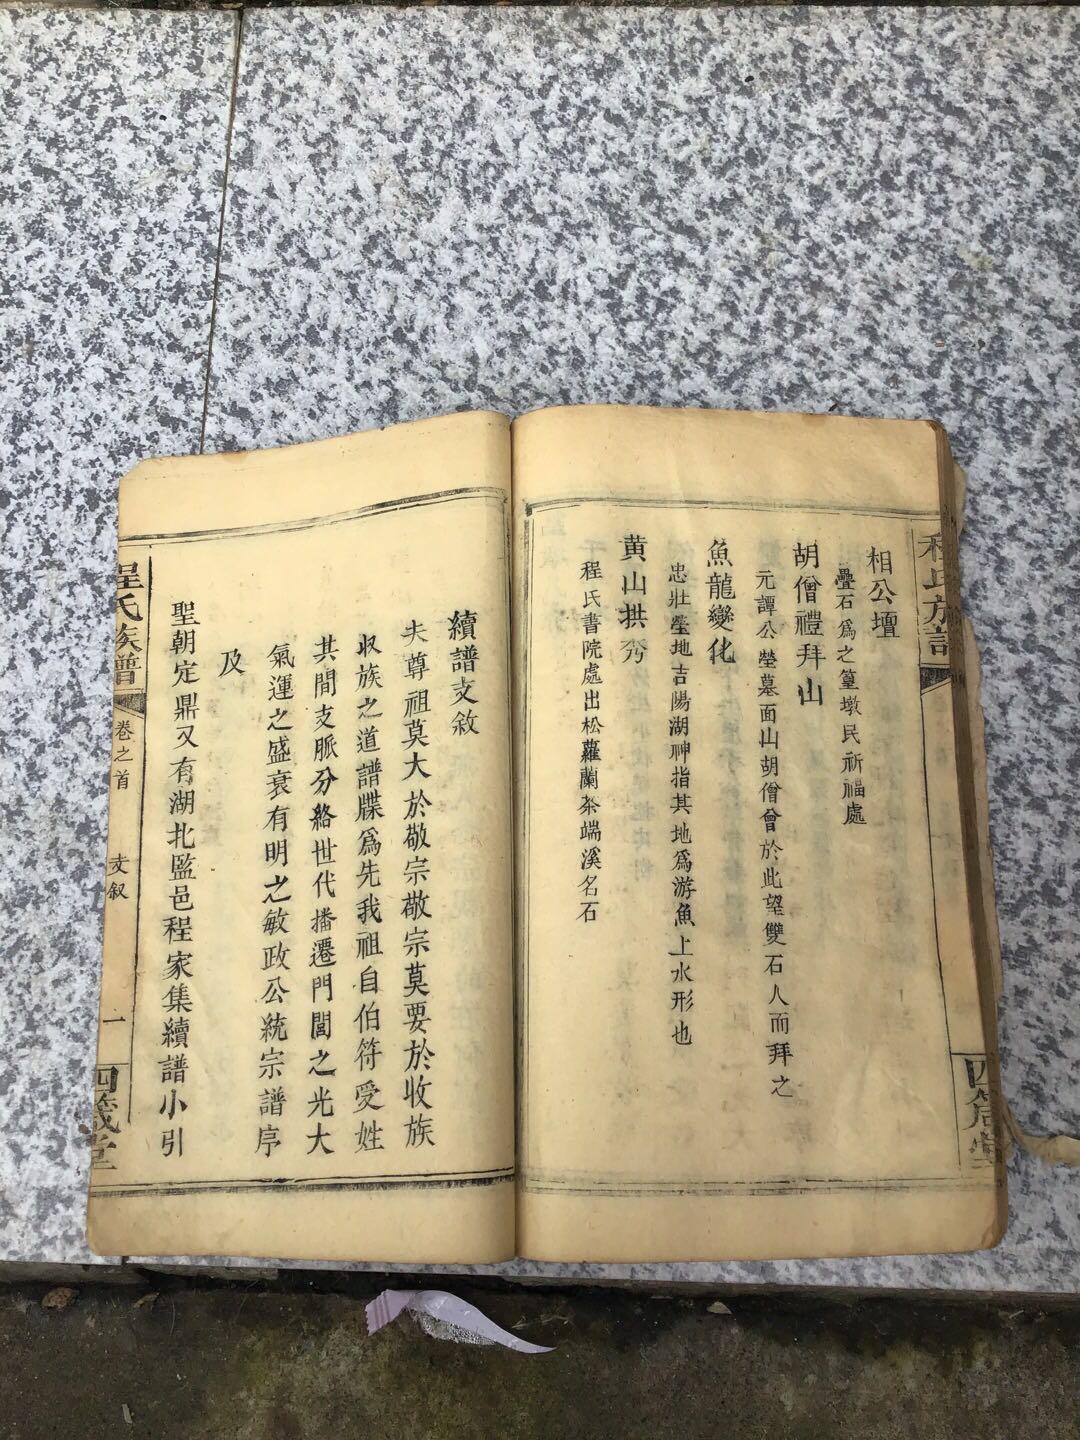 相公壇
疊石爲之篁墩民祈福處
胡僧禮拜山
元譚公塋墓面山胡僧曾於此望雙石人而拜之
魚龍變化
忠壯塋地吉陽湖神指其地爲游魚上水形也
黄山拱秀
程氏書院處出松蘿蘭茶端溪名石
續譜支敘
夫尊祖莫大於敬宗敬宗莫要於收族
収族之道譜牒爲先我祖自伯符受姓
其間支脈分絡世代播遷門閭之光大
氣運之盛衰有明之敏政公統宗譜序
及
聖朝定鼎又有湖北監邑程家集續譜小引
程氏族譜
卷之首
支叙
一
四箴堂